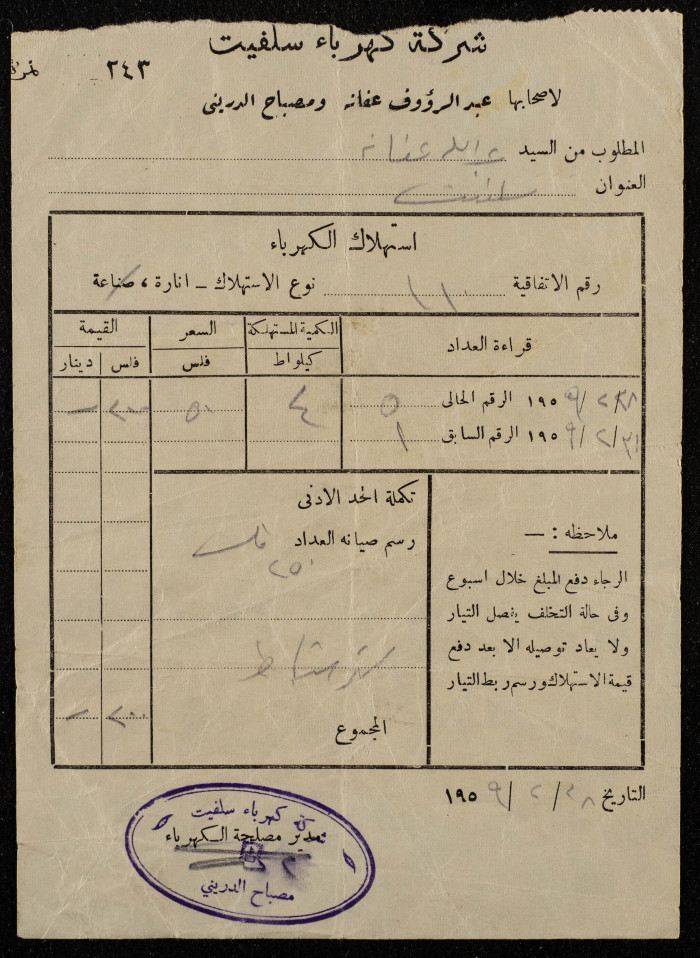 شركة كهرباء سلفيت
نمرة ٢٤٣
لاصحابها عبد الرؤوف عفانه ومصباح الدريني
المطلوب من السيد عبدالله عفانه
العنوان سلفيت
استهلاك الكهرباء
رقم الاتفاقية ١١٠ نوع الاستهلاك - انارة ، صناعة
قراءة العداد الكمية المستهلكة السعر القيمة
كيلواط فلس فلس دينار
١٩٥٩/٢/٢٨ الرقم الحالى ٥ ٤ ٥٠ ٢٠٠ -
١٩٥٩/٢/ الرقم السابق ١
تكملة الحد الادنى
رسم صيانه العداد فلس
٢٥٠
ملاحظه : —
الرجاء دفع المبلغ خلال اسبوع
وفى حالة التخلف يفصل التيار
ولا يعاد توصيله الا بعد دفع
قيمة الاستهلاك ورسم ربط التيار
المجموع ٢٠٠ -
التاريخ ٢٨/٢/١٩٥٩
شركة كهرباء سلفيت
مدير مصلحة الكهرباء
مصباح الدريني